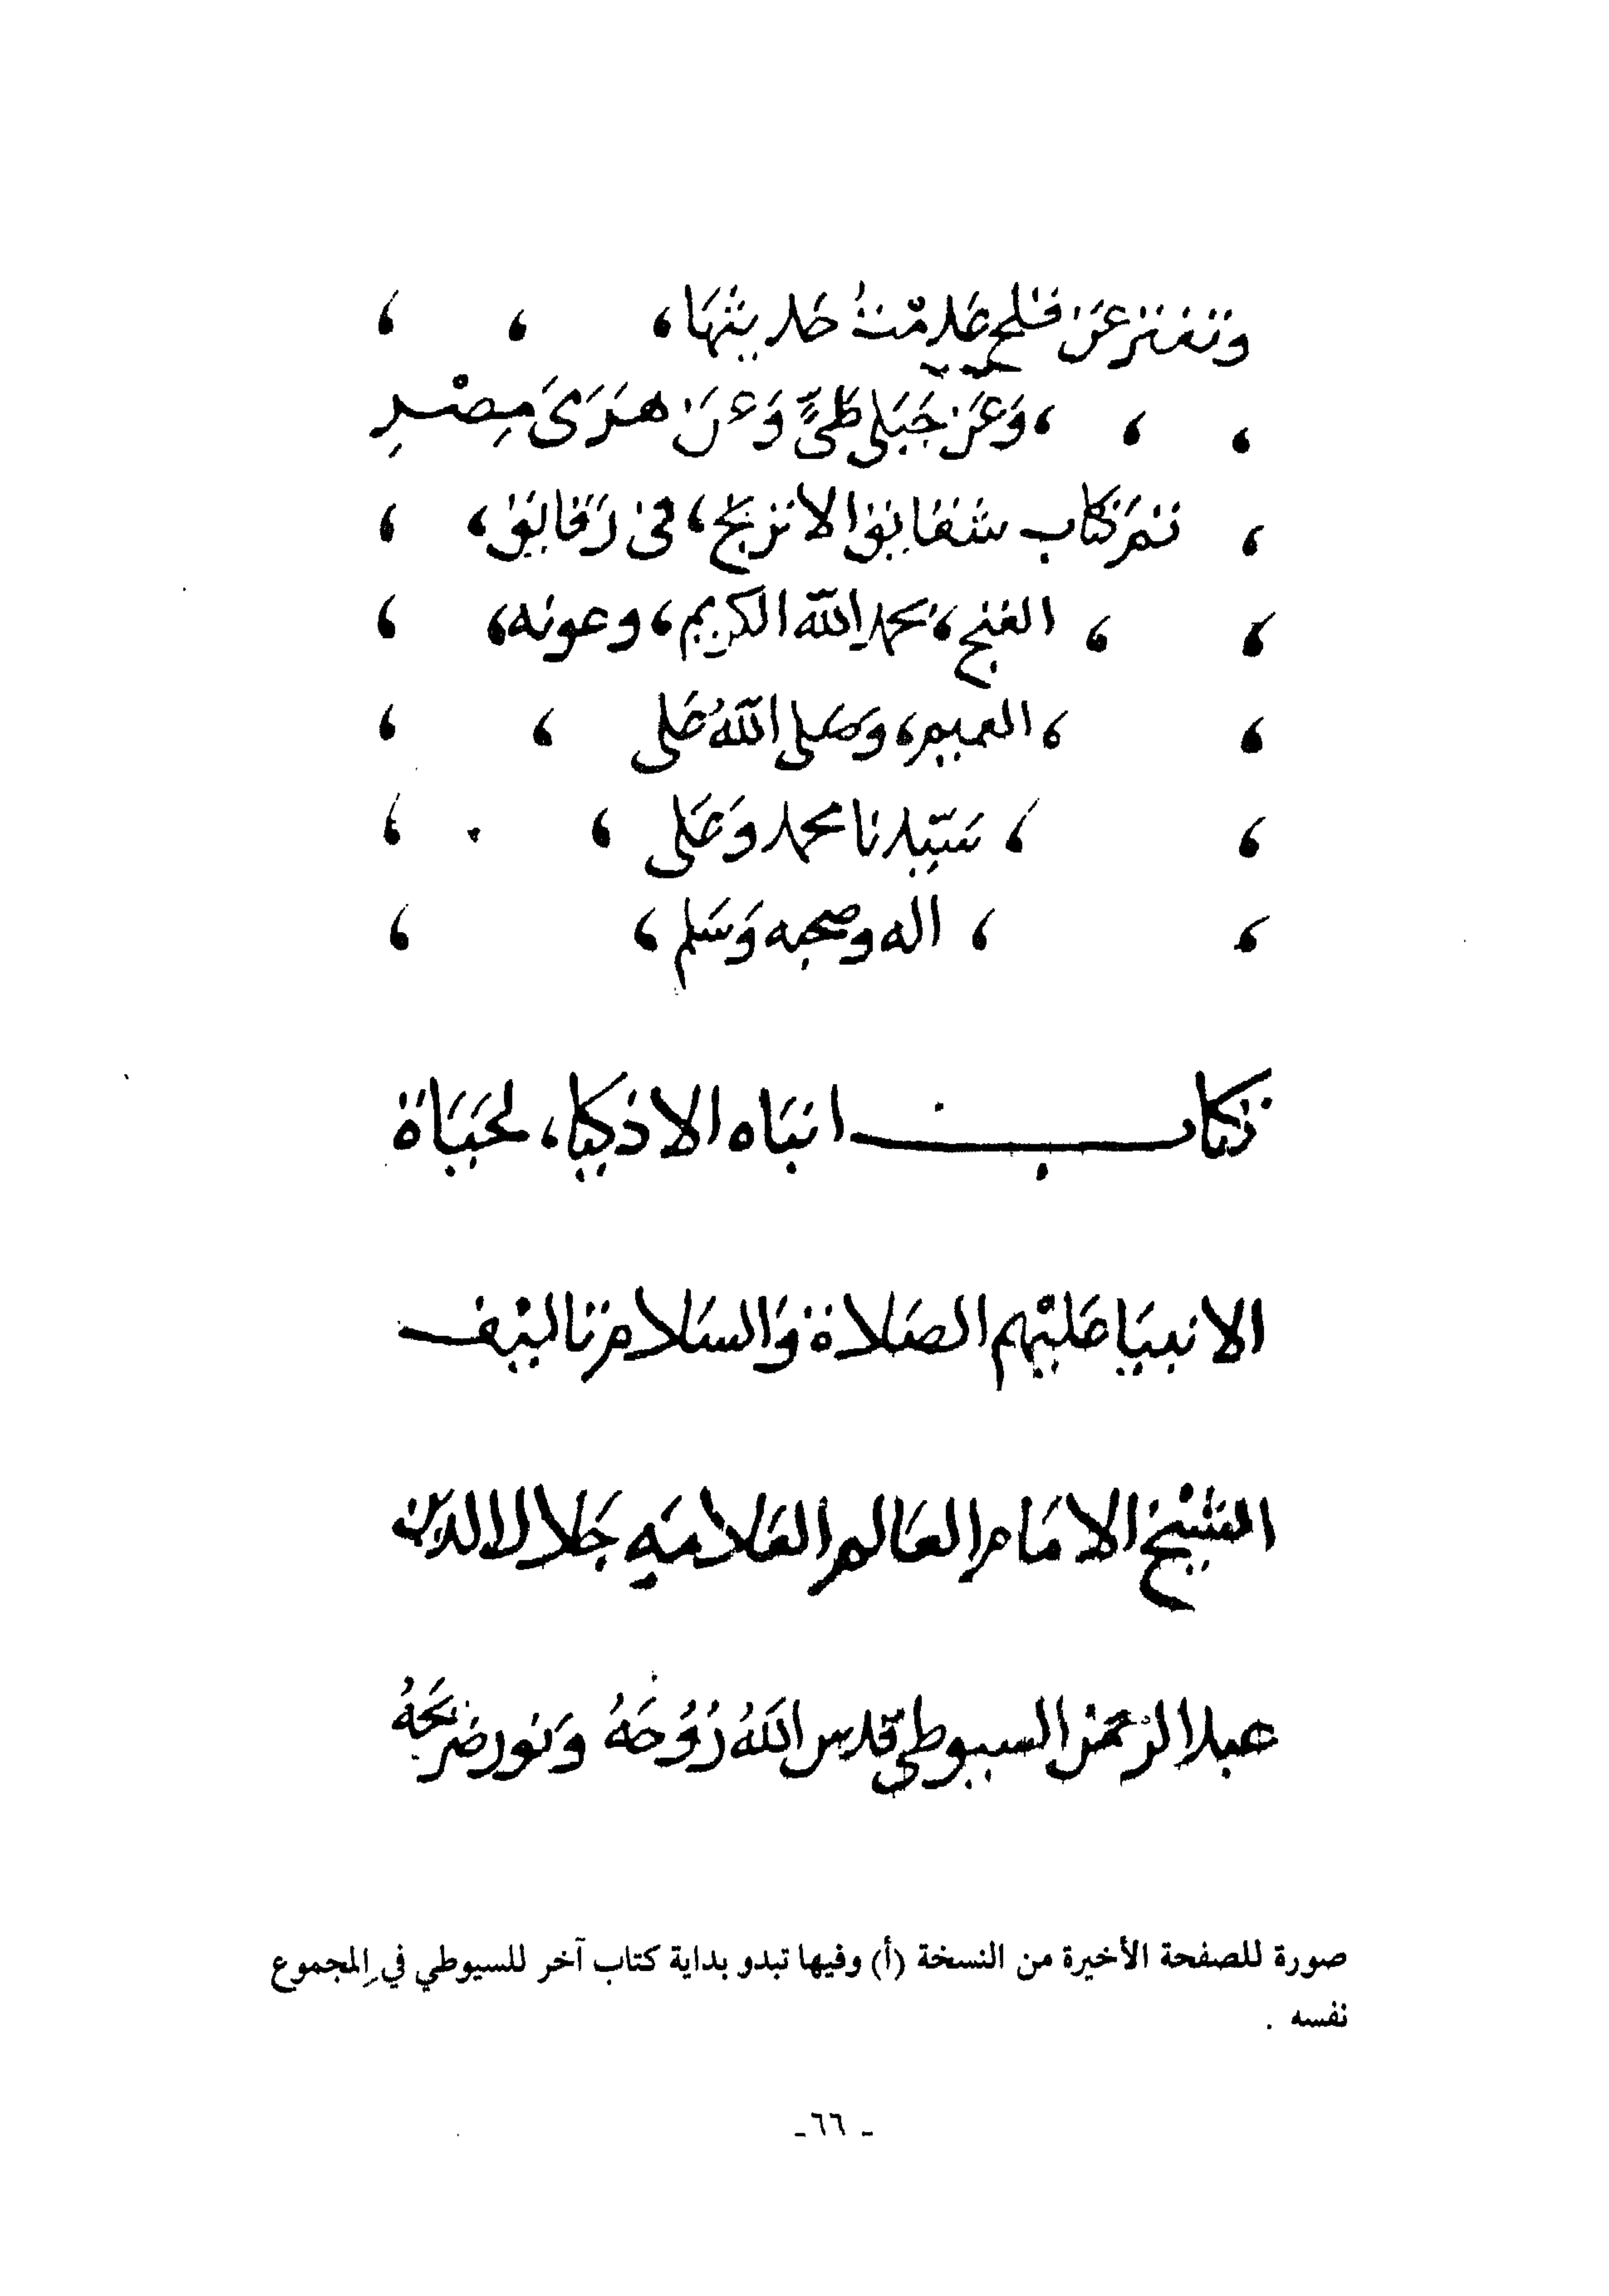 وتفتر عن قلح عَدِمْتُ حَديثهَا،
، وَعَن جَبَلى طَىٍّ وَعَن هَرَمَىْ مِصْرِ
تم كتاب شقايق الاترنج، فى رَقايق،
الغنج، بحمد الله الكريم، وعونه،
، العميم، وَصَلى اللهُ عَلى
، سَيّدنا محمد وَعَلى ،
، اله وصحبه وَسَلم ،
كتاب انبَاه الاذكيا، لحَيَاة
الانبيَا عَليْهم الصَلاة وَالسَلام تاليف
الشيْخ الامَام العَالم العَلامَه جَلال الدين
عبد الرحمن السيوطى قدس اللهُ رُوُحَهُ وَنور ضَريحَهُ
صورة للصفحة الأخيرة من النسخة (أ) وفيها تبدو بداية كتاب آخر للسيوطي في المجموع
نفسه .
ـ ٦٦ ـ